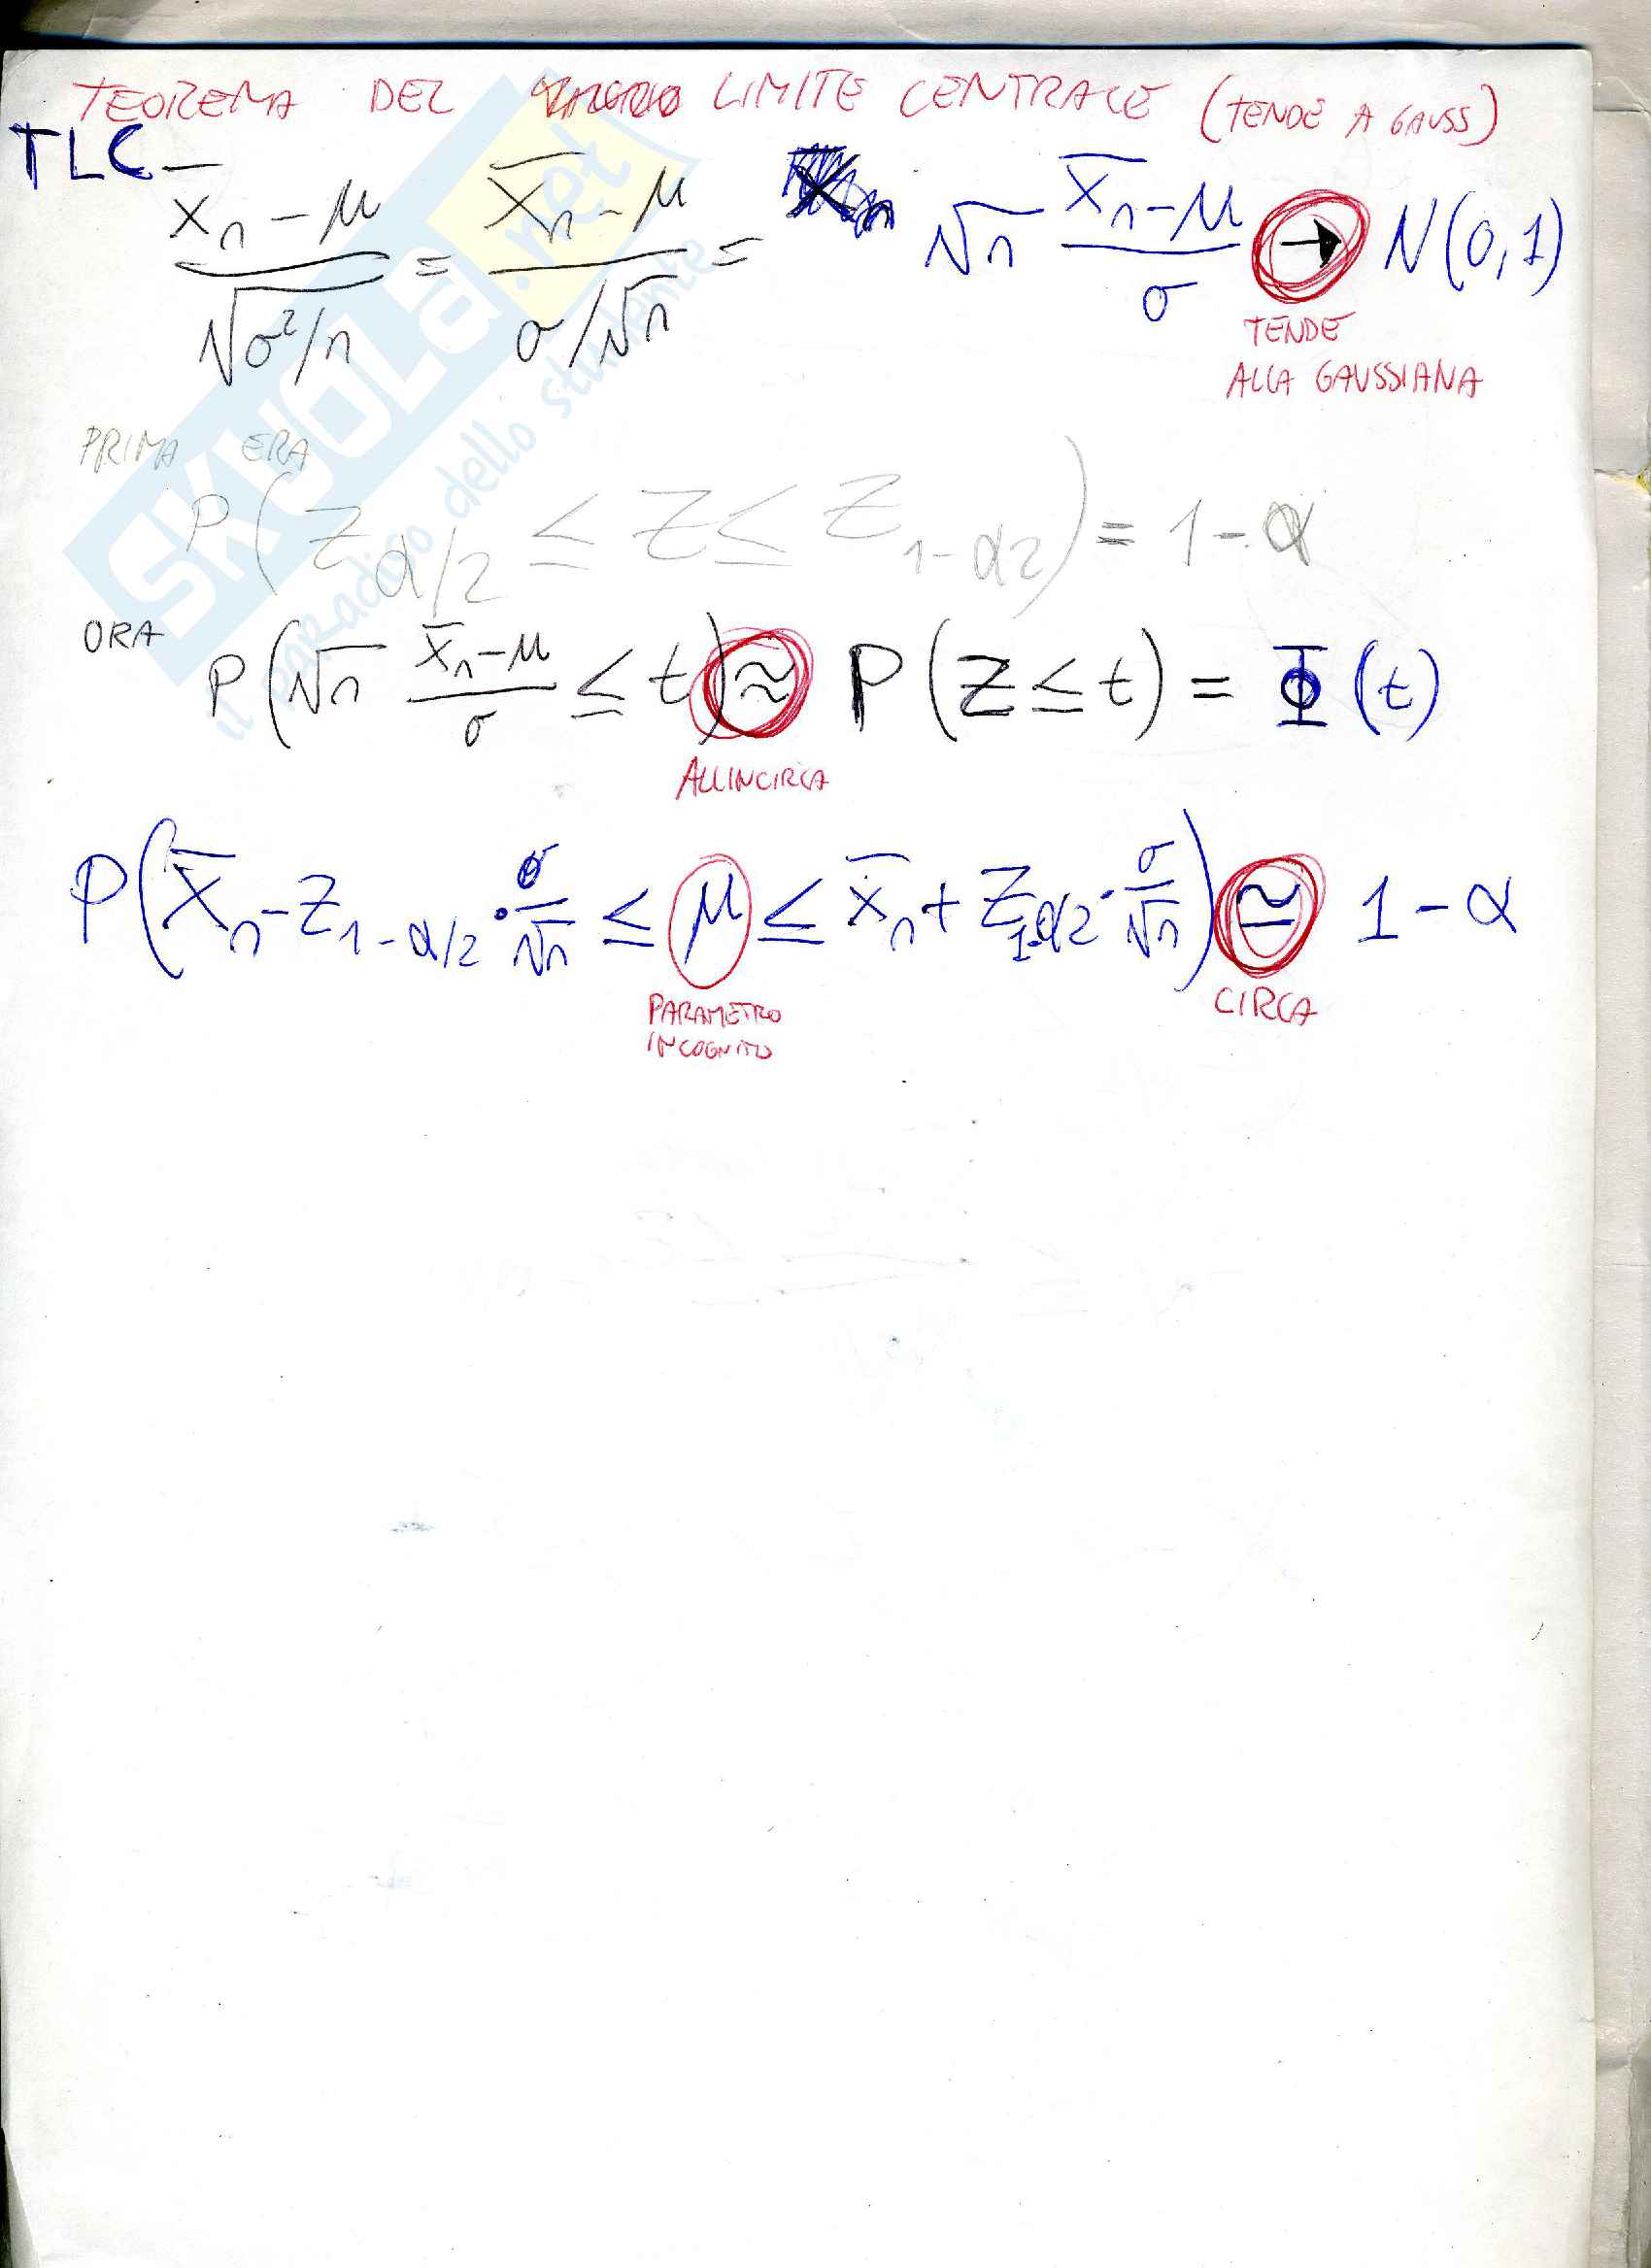 TEOREMA DEL LIMITE CENTRALE (TENDE A GAUSS)
TLC
(X̄n - μ)/√(σ²/n) = (X̄n - μ)/(σ/√n) = √n (X̄n - μ)/σ → N(0,1)
TENDE
ALLA GAUSSIANA
PRIMA ERA
P(Zα/2 ≤ Z ≤ Z1-α2) = 1-α
ORA P(√n (X̄n - μ)/σ ≤ t) ≈ P(Z ≤ t) = Φ(t)
ALLINCIRCA
P(X̄n - Z1-α/2 · σ/√n ≤ μ ≤ X̄n + Z1-α/2 · σ/√n) ≃ 1-α
PARAMETRO
INCOGNITO
CIRCA
SKUOLA.net
il paradiso dello studente